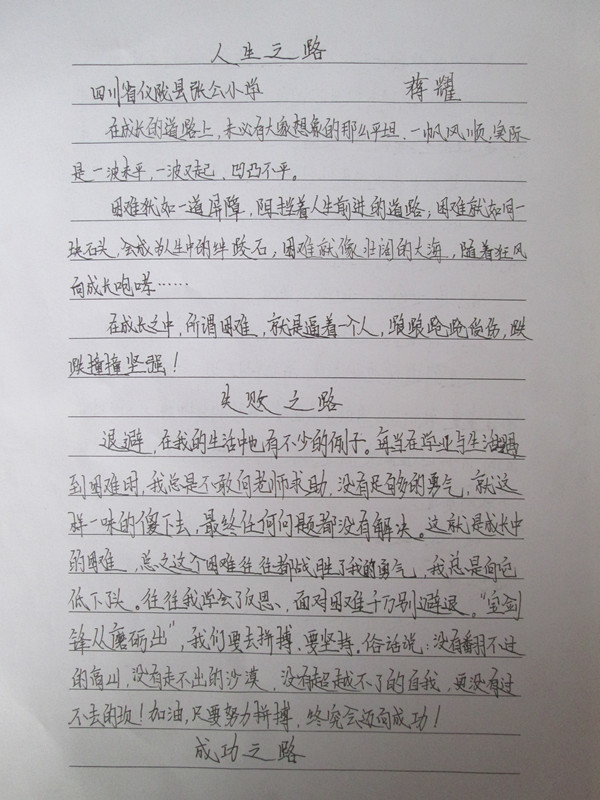 人生之路
四川省仪陇县张公小学 蒋耀
在成长的道路上，未必有大家想象的那么平坦、一帆风顺，实际
是一波未平，一波又起，凹凸不平。
困难犹如一道屏障，阻挡着人生前进的道路；困难就如同一
块石头，会成为人生中的绊脚石；困难就像壮阔的大海，随着狂风
向成长咆哮……
在成长之中，所谓困难，就是逼着一个人，踉踉跄跄受伤，跌
跌撞撞坚强！
失败之路
退避，在我的生活中也有不少的例子。每当在学业与生活遇
到困难时，我总是不敢向老师求助，没有足够的勇气，就这
样一味的傻下去，最终任何问题都没有解决。这就是成长中
的困难，总之这个困难往往都战胜了我的勇气，我总是向它
低下头。往往我学会了反思、面对困难千万别避退。“宝剑
锋从磨砺出”，我们要去拼搏、要坚持。俗话说：没有翻不过
的高山，没有走不出的沙漠，没有超越不了的自我，更没有过
不去的坎！加油，只要努力拼搏，终究会迈向成功！
成功之路